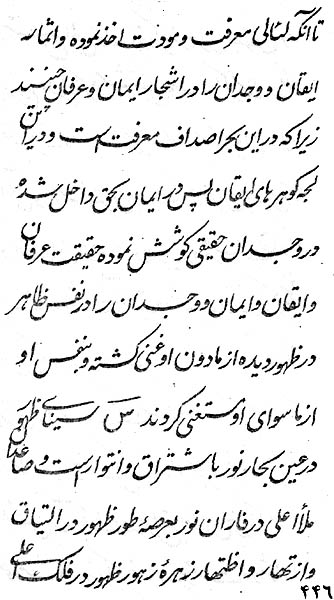 تا آنکه لئالی معرفت و مودت اخذ نموده و اثمار
ایقان و وجدان را در اشجار ایمان و عرفان چینند
زیرا که در این بحر اصداف معرفت است و در این
لجه گوهرهای ایقان پس در ایمان بحق داخل شده
در وجدان حقیقی کوشش نموده حقیقت عرفان
و ایقان و ایمان و وجدان را در نفس ظاهر
در ظهور دیده از مادون او غنی گشته و بنفس او
از ماسوای او مستغنی گردند س سینای ظهور
در عین بحار نور باشراق و انتوار است و صاعدان
ملأ اعلی در فاران نور بعرصهٔ طور ظهور در التیاق
و ازتهار و اظتهار زهرهٔ زهور ظهور در فلک اعلی
۴۴۶